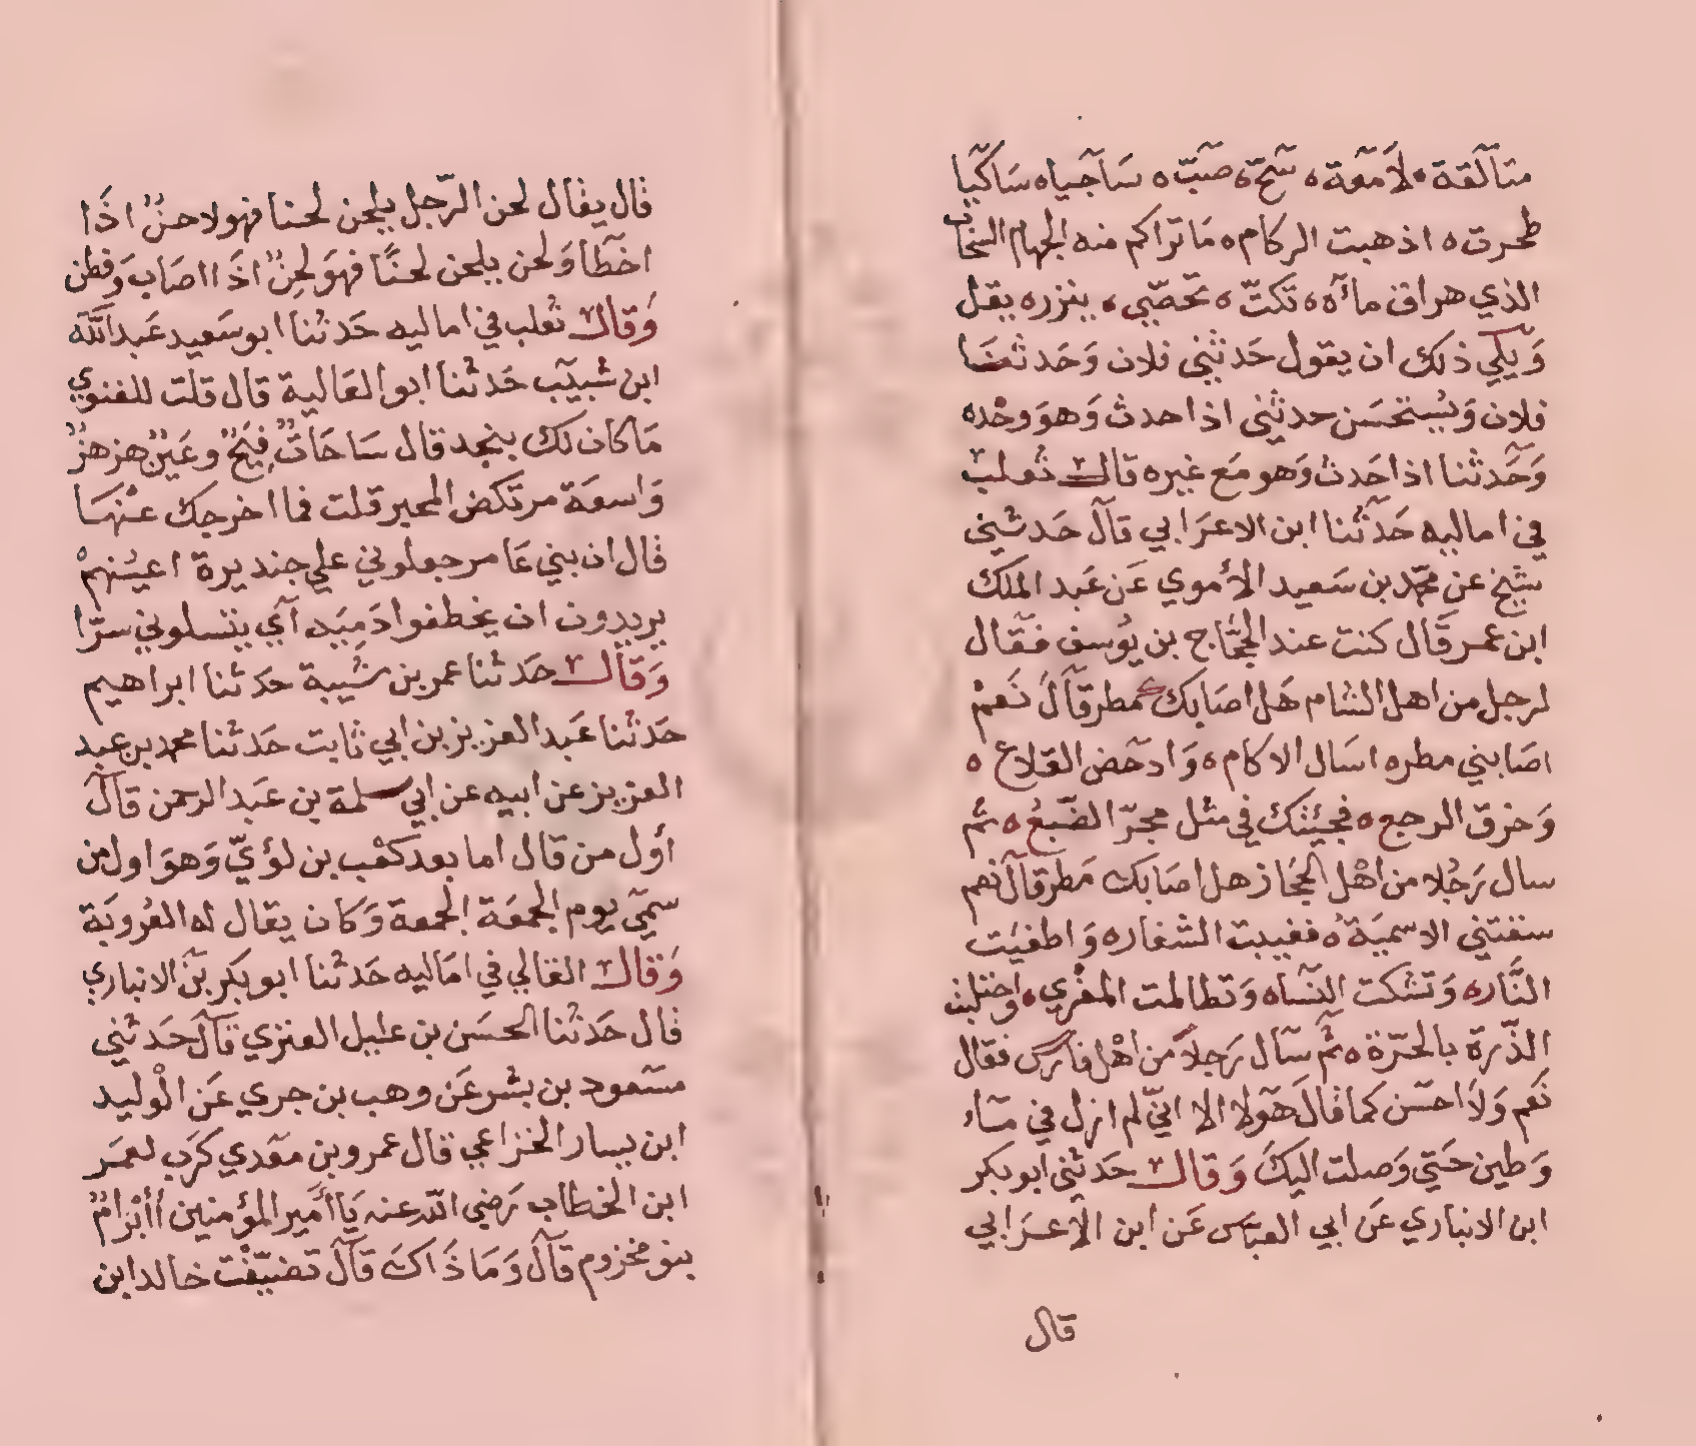 متآلقة ه لآمعة ه سحّ ه صبّ ه ساجيا ه ساكيا
طحرت ه اذهبت الركام ه ماتراكم منه الجهام السحاب
الذي هراق مآه ه تكتّ ه تحصّي ه ينزره يقل
وَيلي ذلك ان يقول حَدثني فلان وَحَدثنا
فلان وَيُستحسَن حدثني اذا حدث وَهوَ وحْده
وَحَدثنا اذا حَدث وَهو مَع غيره قال ثعلب
في اماليه حَدّثنا ابن الاعرَابي قال حَدثني
شيخ عن محمّد بن سَعيد الأموي عَن عَبد الملك
ابن عمر قال كنت عند الحجّاج بن يُوسف فقال
لرجل من اهل الشام هَل اصَابك مطر قالَ نَعمْ
اصَابني مطر ه اسَال الاكام ه وَادحَض القلاع ه
وَخرق الرجع ه فجيئتك في مثل مجرّ الضّبعُ ه ثم
سال رَجُلا من اهْل الحجَاز هل اصَابك مَطر قال نعم
سقتني الاسميَة ه فغيبت الشفار ه وَاطفيَت
النَّار ه وَتشكت النسَا ه وَتظالمت المعْزي ه واحتلبت
الذّرة بالحرّة ه ثم سآل رَجلاً من اهْل فارس فقال
نَعم وَلاَ احسَن كما قال هَولا الا انيّ لم ازل في مآء
وَطين حَتي وَصلت اليكَ وَقال حَدثني ابوبكر
ابن الانباري عَن ابي العبّاس عَن ابن الآعرَابي
قال
قال يقال لحن الرّجل يلحن لحنا فهو لاحنٌ اذَا
اخطَا وَلحن يلحن لحنًا فهوَ لحِنٌ اذَا اصَابَ وَفطن
وَقال ثعلب في اماليه حَدثنا ابو سَعيد عَبدالله
ابن شبيب حَدثنا ابو العَالية قال قلت للغنوي
مَا كان لك بنجد قال سَاحَاتٌ فِيَحٌ وعَينٌ هزهزٌ
وَاسعَة مرتكض المحير قلت فما اخرجك عنْهَا
قال ان بني عَامر جعلوني علي جنديرة اعيُنهمْ
يريدون ان يخطفوا دَمِيَه آي يقتسلوني سرّا
وَقال حَدثنا عمر بن شَيبة حَدثنا ابراهيم
حَدثنا عَبد العزيز بن ابي ثابت حَدثنا محمد بن عبد
العزيز عن ابيه عن ابي سلمة بن عَبد الرحمن قالَ
أول من قال اما بعد كعْب بن لؤيّ وَهوَ اول من
سمّي يوم الجمعَة الجمعة وَكان يقال له العُروبَة
وَقال القالي في امَاليه حَدثنا ابو بكر بن الانباري
قال حَدثنا الحسَن بن عليل العنزي قالَ حَدثني
مسَعود بن بشر عَن وهب بن جري عَن الْوليد
ابن يسار الخزاعي قال عمرو بن معَدي كرَب لعمَر
ابن الخطاب رَضي الله عنه يَا أمَير المؤمنين أأبْرامٌ
بنو مخزوم قال وَمَا ذَاكَ قال تضيّفْت خالد ابن